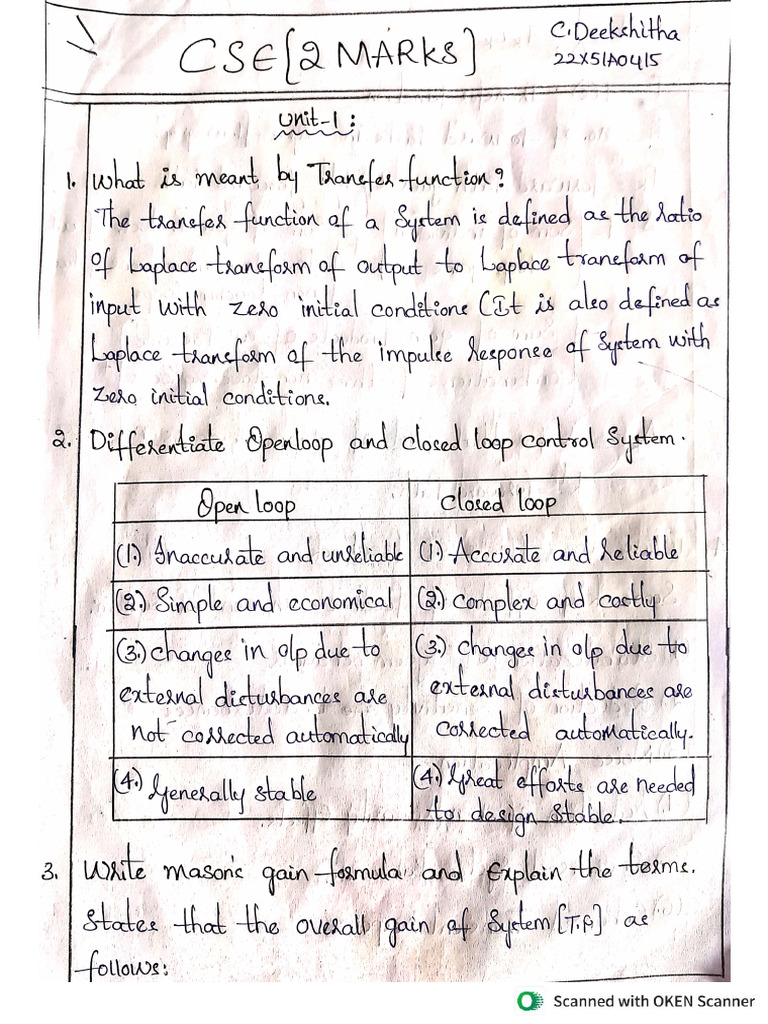 CSE[2 MARKS]
C.Deekshitha
22X51A0415
Unit-1:
1. What is meant by Transfer function?
The transfer function of a System is defined as the ratio
of Laplace transform of output to Laplace transform of
input with zero initial conditions (It is also defined as
Laplace transform of the impulse Response of System with
zero initial conditions.
2. Differentiate Openloop and closed loop control System.
Open loop
closed loop
(1.) Inaccurate and unreliable
(1.) Accurate and reliable
(2.) Simple and economical
(2.) complex and costly
(3.) changes in o/p due to
external disturbances are
not corrected automatically
(3.) changes in o/p due to
external disturbances are
corrected automatically.
(4.) Generally stable
(4.) Great efforts are needed
to design stable.
3. Write mason's gain formula and explain the terms.
States that the overall gain of System [T.F] as
follows:
Scanned with OKEN Scanner